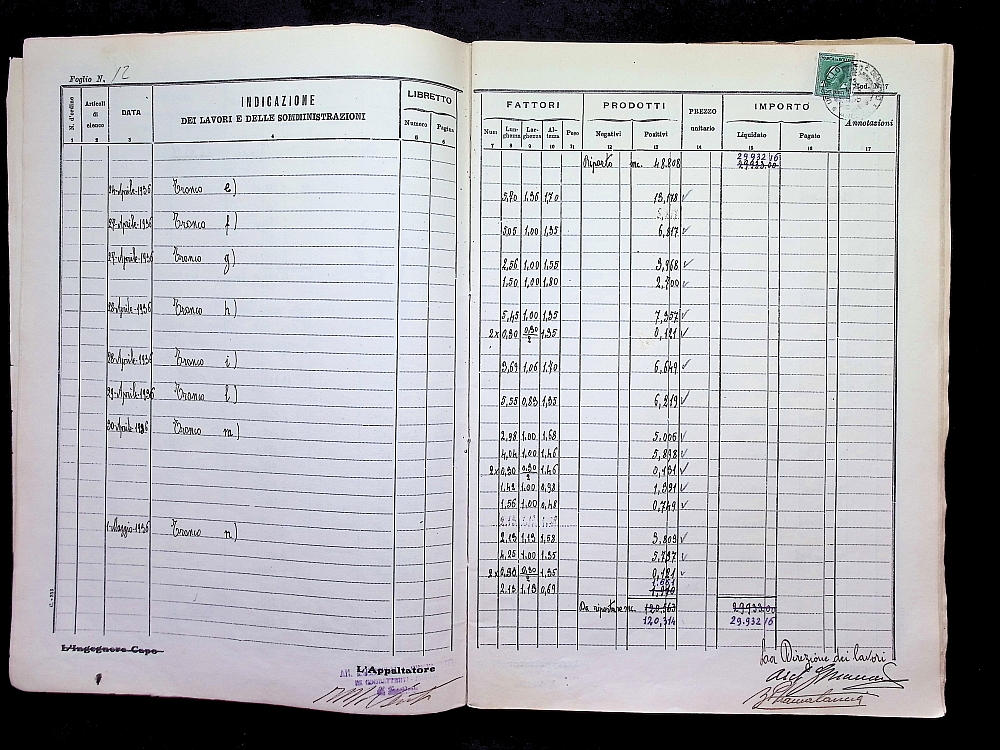 Foglio N. 12
N. d'ordine
Articoli di elenco
DATA
INDICAZIONE
DEI LAVORI E DELLE SOMMINISTRAZIONI
LIBRETTO
Numero Pagina
1 2 3 4 5 6
24-Aprile-1936 Tronco e)
27-Aprile-1936 Tronco f)
27-Aprile-1936 Tronco g)
28-Aprile-1936 Tronco h)
28-Aprile-1936 Tronco i)
29-Aprile-1936 Tronco l)
30-Aprile-1936 Tronco m)
1-Maggio-1936 Tronco n)
L'Ingegnere Capo
L'Appaltatore
Mod. N. 7
FATTORI PRODOTTI PREZZO unitario IMPORTO Annotazioni
Num Lunghezza Larghezza Altezza Peso Negativi Positivi Liquidato Pagato
7 8 9 10 11 12 13 14 15 16 17
29.932 16
Riporto mc. 48.808 29933.00
5,70 1.36 1,70 13,178
5,05 1,00 1,35 6,817
2,56 1,00 1,55 3,968
1,50 1,00 1,80 2,700
5,45 1,00 1,35 7,357
2x 0,30 0,30/2 1,35 0,121
3,69 1,06 1,70 6,649
5,55 0,83 1,35 6,219
2,98 1.00 1,68 5.006
4,04 1.00 1,46 5,898
2x 0,30 0.30/2 1,46 0,131
1,42 1.00 0,98 1,391
1,56 1.00 0,48 0,749
2,13 1,13 1,58 3,803
4,25 1.00 1,35 5,737
2x 0,30 0,30/2 1,35 0,121
1.661
2.13 1,13 0,69
Da riportare mc. 120,563 29933.00
120,314 29.932 16
La Direzione dei lavori